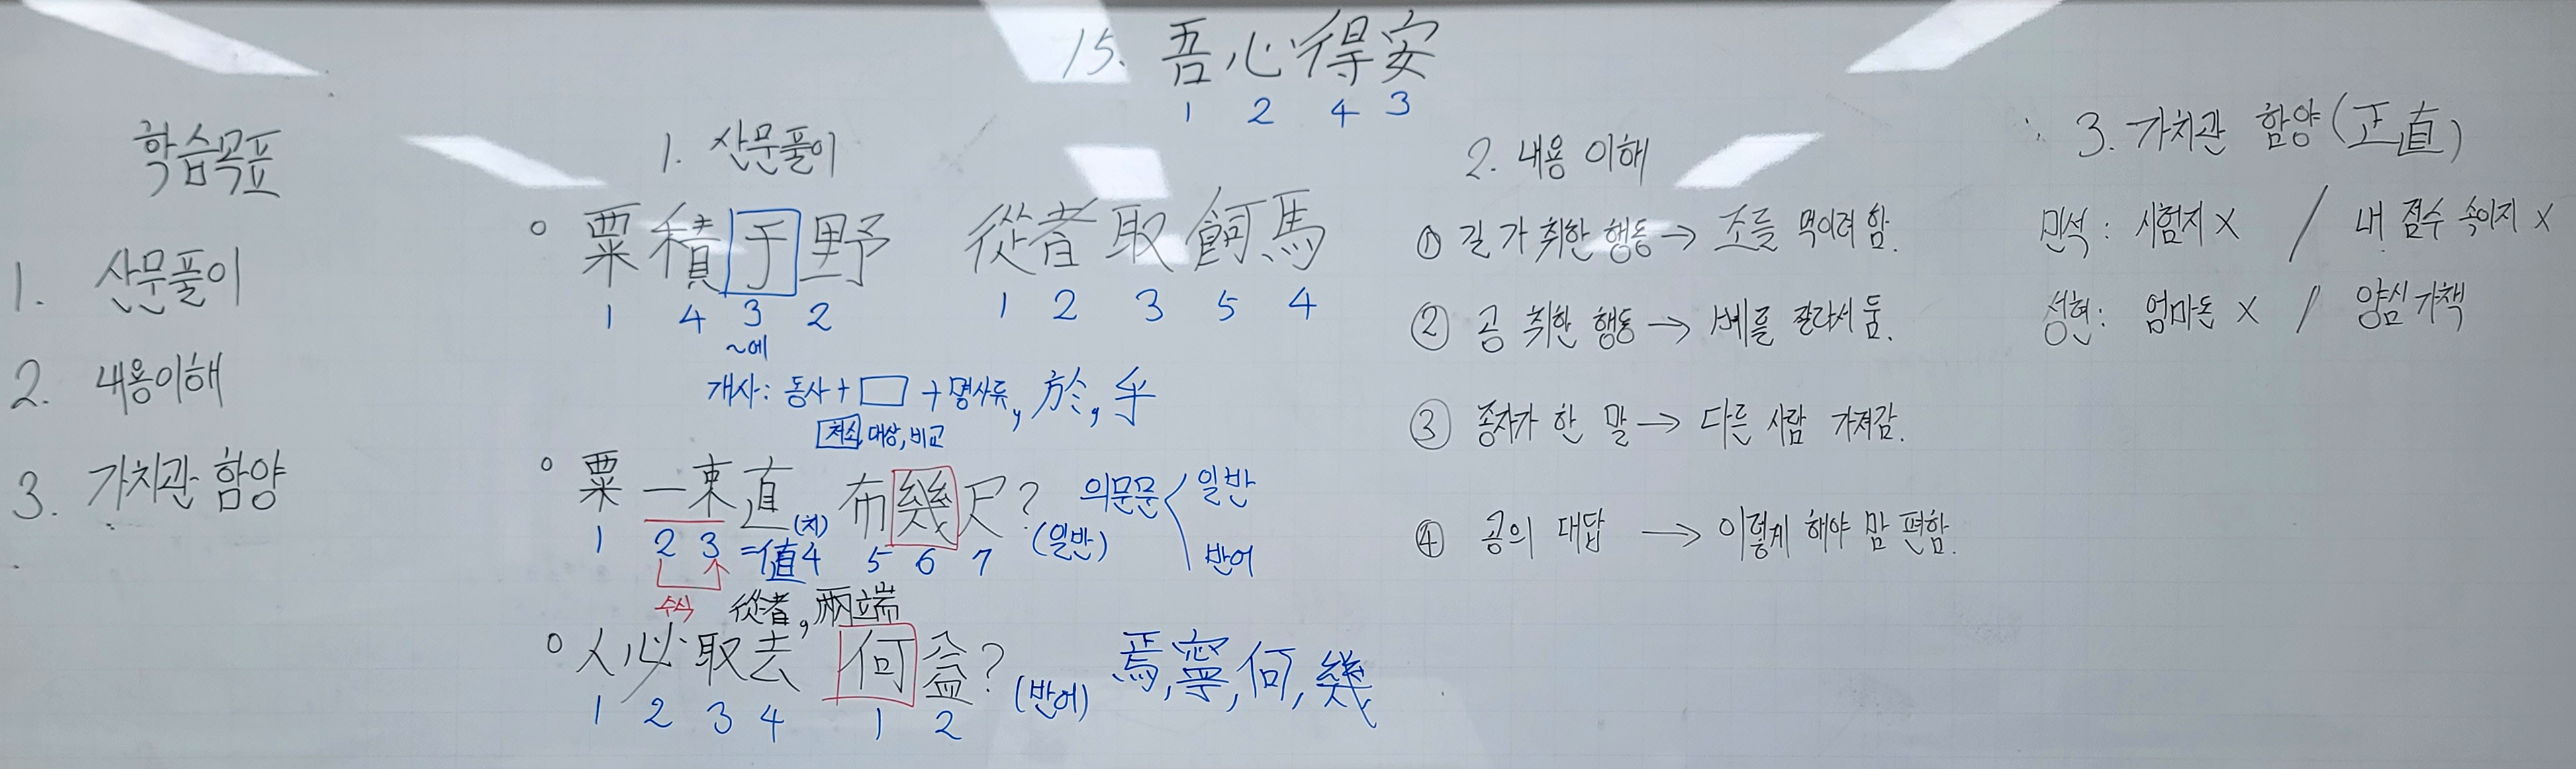 15. 吾心得安
1 2 4 3
학습목표
1. 산문풀이
2. 내용이해
3. 가치관 함양
1. 산문풀이
○ 粟積于野 從者取飼馬
1 4 3 2 1 2 3 5 4
~에
개사: 동사+□+명사류, 於, 乎
처소, 대상, 비교
○ 粟一束直 布幾尺? (일반)
1 2 3 =値(치) 4 5 6 7
의문문 < 일반
반어
수식 從者, 兩端
○ 人必取去 何益? (반어) 焉, 寧, 何, 幾
1 2 3 4 1 2
2. 내용 이해
① 길가 취한 행동 → 조를 먹이려 함.
② 공 취한 행동 → 베를 잘라서 둠.
③ 종자가 한 말 → 다른 사람 가져감.
④ 공의 대답 → 이렇게 해야 맘 편함.
3. 가치관 함양(正直)
민석: 시험지 X / 내 점수 속이지 X
성현: 엄마돈 X / 양심 가책